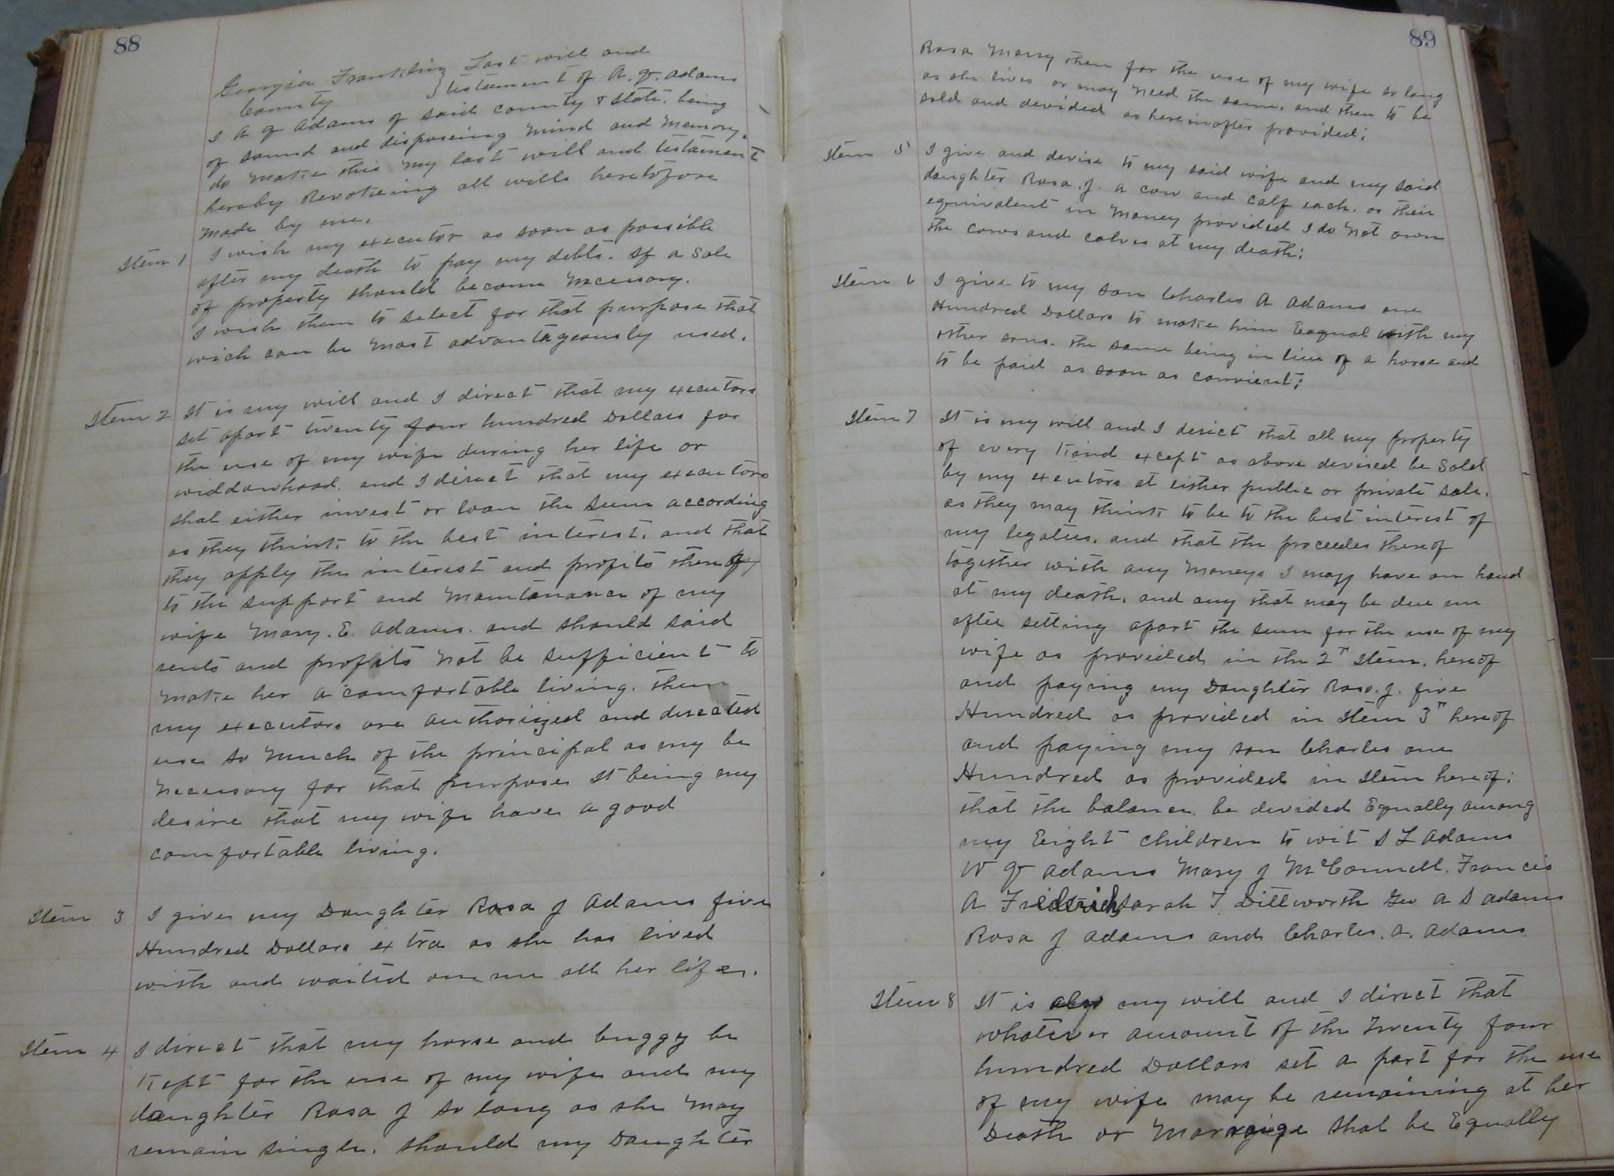 88
Georgia Franklin } Last will and
County } testament of A. G. Adams
I A G Adams of said county & state. being
of sound and disposeing mind and memory.
do make this my last will and testament
hereby Revokeing all wills heretofore
made by me.
Item 1 I wish my executor as soon as possible
after my death to pay my debts. If a sale
of property should become necessary.
I wish them to select for that purpose that
wich can be most advantageously used.
Item 2 It is my will and I direct that my executors
set apart twenty four hundred Dollars for
the use of my wife during her life or
widdowhood. and I direct that my executors
shal either invest or loan the sum according
as they think to the best interest. and that
they apply the interest and profits thereof
to the support and maintanance of my
wife Mary. E. Adams. and should said
rents and profits not be sufficient to
make her a comfortable living. then
my executors are authorized and directed
use so much of the principal as my be
necessary for that purpose It being my
desire that my wife have a good
comfortable living.
Item 3 I give my Daughter Rosa J Adams five
Hundred Dollars extra as she has lived
with and waited on me all her life.
Item 4 I direct that my horse and buggy be
Kept for the use of my wife and my
daughter Rosa J so long as she may
remain single. should my Daughter
89
Rosa Marry then for the use of my wife so long
as she lives or may need the same. and then to be
sold and devided as hereinafter provided;
Item 5 I give and devise to my said wife and my said
daughter Rosa. J. a cow and calf each. or their
equivalent in money provided I do not own
the cows and calves at my death;
Item 6 I give to my son Charles A Adams one
Hundred Dollars to make him Eaqual with my
other sons. the same being in lieu of a horse and
to be paid as soon as convient;
Item 7 It is my will and I derict that all my property
of every Kind except as above devised be Sold
by my executors at either public or private sale.
as they may think to be to the best interest of
my legaties. and that the proceedes thereof
together with any moneys I may have on hand
at my death. and any that may be due me
after setting apart the sum for the use of my
wife as provided in the 2" Item. hereof
and paying my Daughter Rosa. J. five
Hundred as provided in Item 3" hereof
and paying my son Charles one
Hundred as provided in Item hereof;
that the balance be devided Equally among
my Eight children to wit S L Adams
W G Adams Mary J McConnell. Francis
A Fridrich Sarah T Dillworth Geo A S Adams
Rosa J Adams and Charles. A. Adams
Item 8 It is also my will and I direct that
whatever amount of the Twenty four
hundred Dollars set a part for the use
of my wife may be remaining at her
Death or Marraige shal be Equally